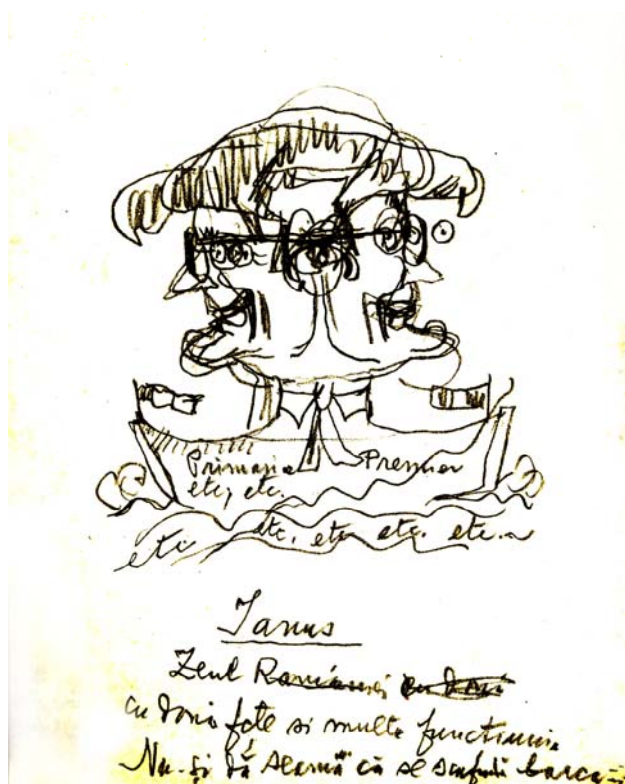 Primaria Premier
etc, etc.
etc etc. etc etc. etc.
Janus
Zeul României
cu doua fețe si multe functiuni.
Nu-și dă seama că se scufundă barca